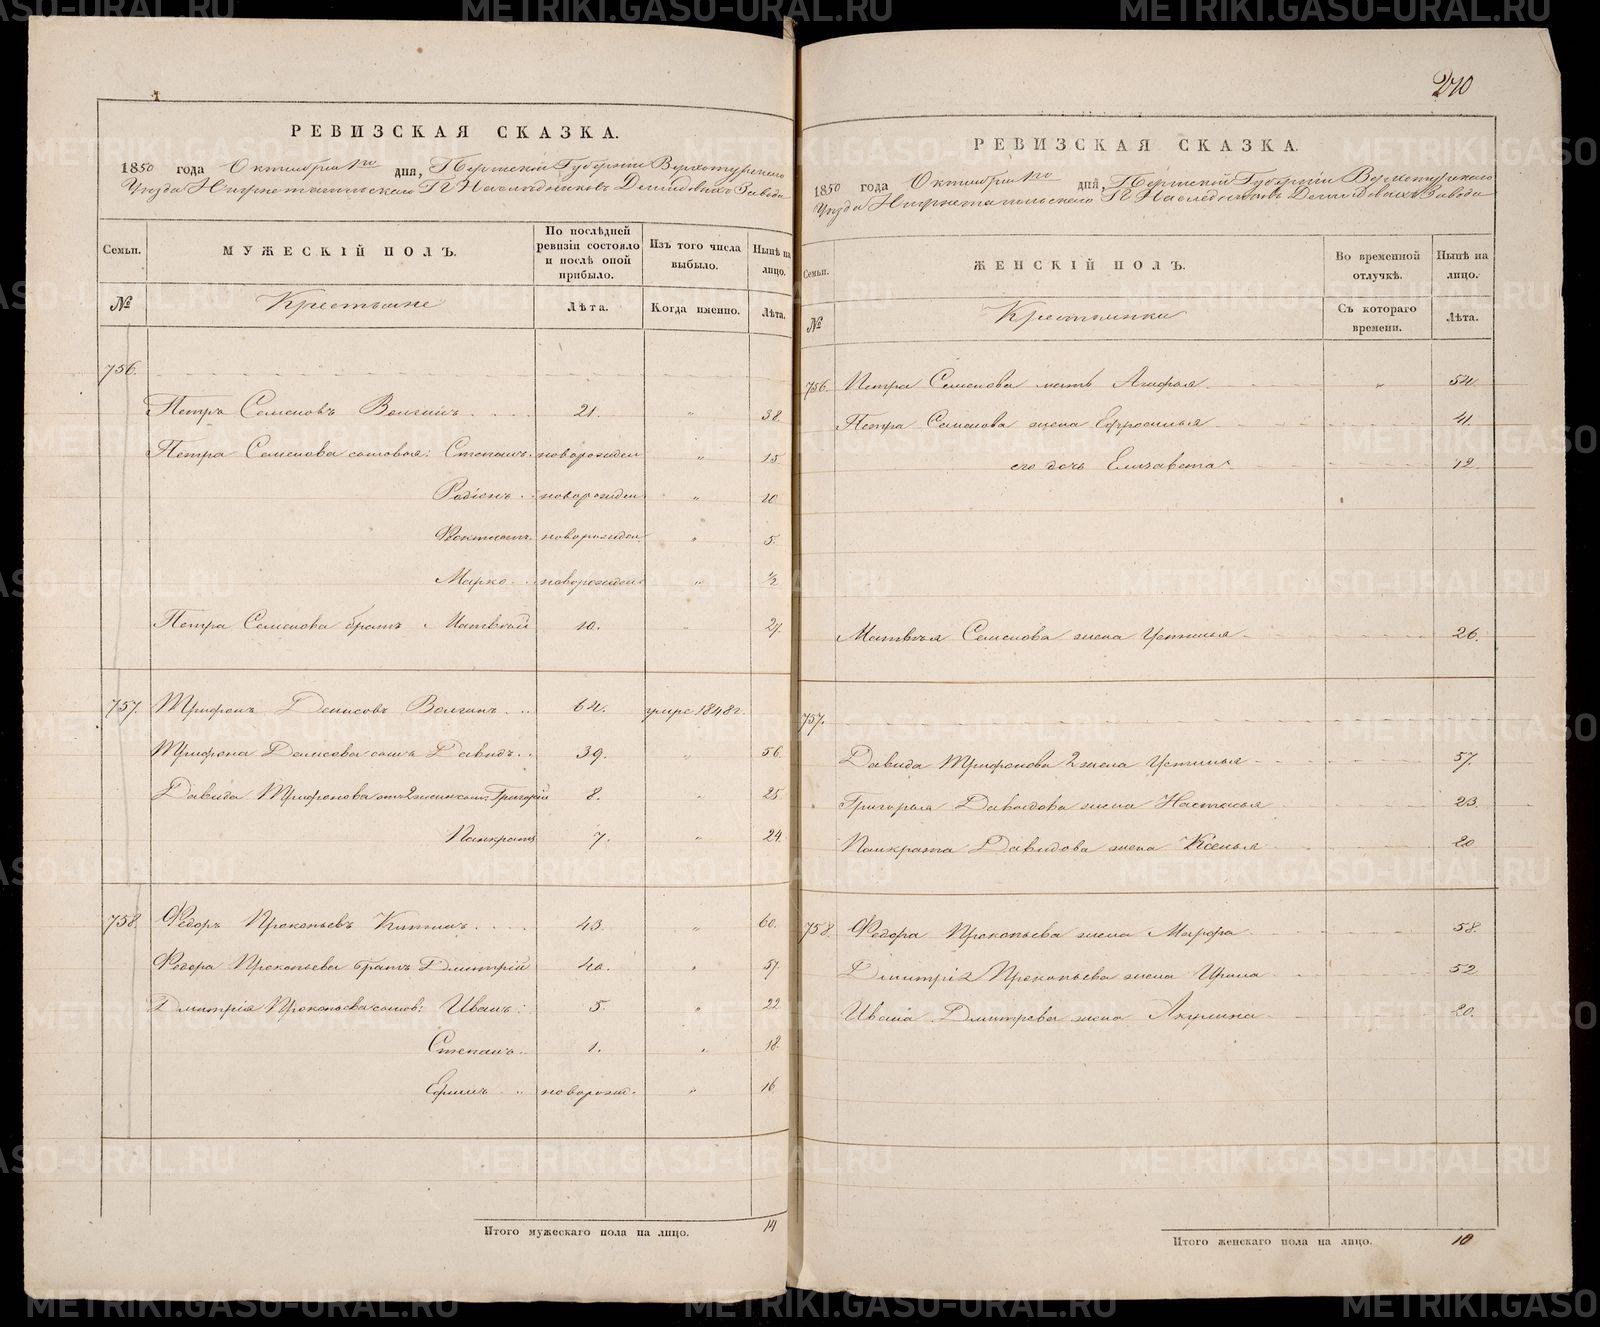 РЕВИЗСКАЯ СКАЗКА.
1850 года Октября 1го дня, Пермской Губернии Верхотурского
Уезда Нижнетагильского Г Наследников Демидовых Завода
Семьи.
МУЖЕСКІЙ ПОЛЪ.
По послѣдней ревизіи состояло и послѣ оной прибыло.
Изъ того числа выбыло.
Нынѣ на лицо.
№
Крестьяне
Лѣта.
Когда именно.
Лѣта.
756.
Петръ Семеновъ Волгинъ 21. " 38.
Петра Семенова сыновья: Степанъ новорожден " 15
Родіонъ новорожден " 10
новорожден " 5.
Марко новорожден " 1/2
Петра Семенова братъ Матвѣй 10. " 27.
757. Трифонъ Денисовъ Волгинъ 64. умре 1848г.
Трифона Денисова сынъ Давидъ 39. " 56.
Давида Трифонова отъ 2 жены сынъ Григорій 8. " 25
Панкратъ 7. " 24.
758. Федоръ Прокопьевъ 43. " 60.
Федора Прокопьева братъ Дмитрій 40. " 57.
Дмитрія Прокопьева сынов: Иванъ: 5. " 22
Степанъ 1. " 18.
Ефимъ новорожд. " 16
Итого мужескаго пола на лицо. 14
270
РЕВИЗСКАЯ СКАЗКА.
1850 года Октября 1го дня, Пермской Губерніи Верхотурскаго
Уезда Нижнетагильскаго Г Наследниковъ Демидовыхъ Завода
Семьи.
ЖЕНСКІЙ ПОЛЪ.
Во временной отлучкѣ.
Нынѣ на лицо.
№
Крестьянки
Съ котораго времени.
Лѣта.
756. Петра Семенова мать Агафья " 54.
Петра Семенова жена Ефросинья 41.
его дочь Елизавета 12.
Матвѣя Семенова жена Устинья 26.
757.
Давида Трифонова 2 жена Устинья 57.
Григорья Давыдова жена Настасья 23.
Панкрата Давидова жена Ксенья 20
758. Федора Прокопьева жена Марфа 58.
Дмитрія Прокопьева жена Ирина 52
Ивана Дмитрева жена Акулина 20.
Итого женскаго пола на лицо. 10
METRIKI.GASO-URAL.RU